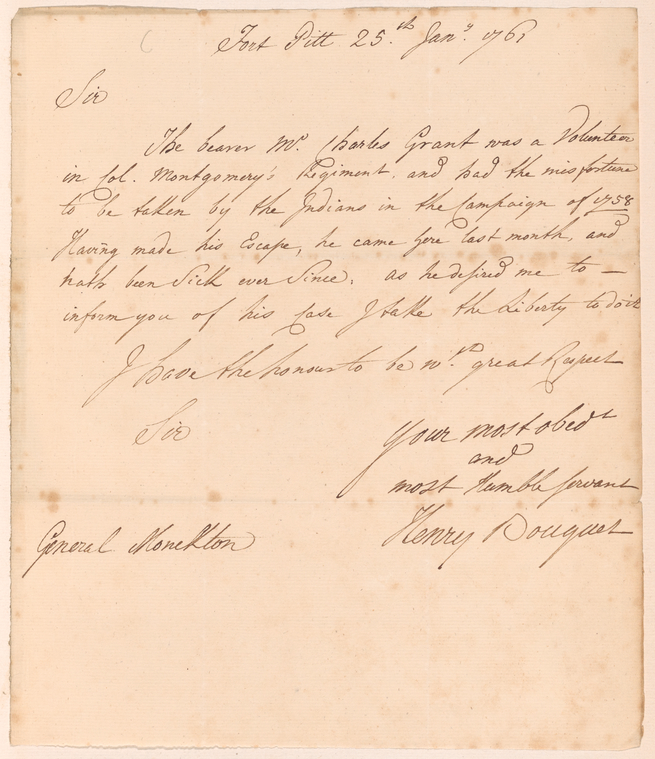 Fort Pitt 25.th Jan.y 1761
Sir
The bearer Mr. Charles Grant was a Volunteer
in Col. Montgomery's Regiment, and had the misfortune
to be taken by the Indians in the Campaign of 1758
Having made his Escape, he came here last month, and
hath been Sick ever Since. as he desired me to —
inform you of his Case I take the Liberty to do it
I have the honour to be w.th great Respect
Sir
Your most obed.t
and
most Humble Servant
Henry Bouquet
General Monckton